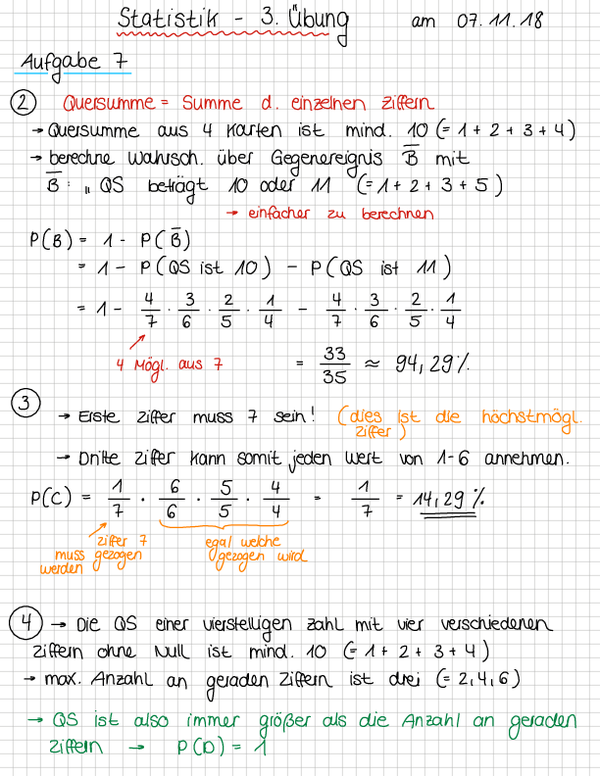 Statistik - 3. Übung am 07.11.18
Aufgabe 7
② Quersumme = Summe d. einzelnen Ziffern
→ Quersumme aus 4 Karten ist mind. 10 (= 1 + 2 + 3 + 4)
→ berechne Wahrsch. über Gegenereignis B̅ mit
B̅ : „ QS beträgt 10 oder 11 (= 1 + 2 + 3 + 5)
→ einfacher zu berechnen
P(B) = 1 - P(B̅)
= 1 - P(QS ist 10) - P(QS ist 11)
= 1 - 4/7 · 3/6 · 2/5 · 1/4 - 4/7 · 3/6 · 2/5 · 1/4
4 Mögl. aus 7 = 33/35 ≈ 94,29%
③ → Erste Ziffer muss 7 sein! (dies ist die höchstmögl.
Ziffer)
→ Dritte Ziffer kann somit jeden Wert von 1-6 annehmen.
P(C) = 1/7 · 6/6 · 5/5 · 4/4 = 1/7 = 14,29%
Ziffer 7 egal welche
muss gezogen gezogen wird
werden
④ → Die QS einer vierstelligen Zahl mit vier verschiedenen
Ziffern ohne Null ist mind. 10 (= 1 + 2 + 3 + 4)
→ max. Anzahl an geraden Ziffern ist drei (= 2,4,6)
→ QS ist also immer größer als die Anzahl an geraden
Ziffern → P(D) = 1